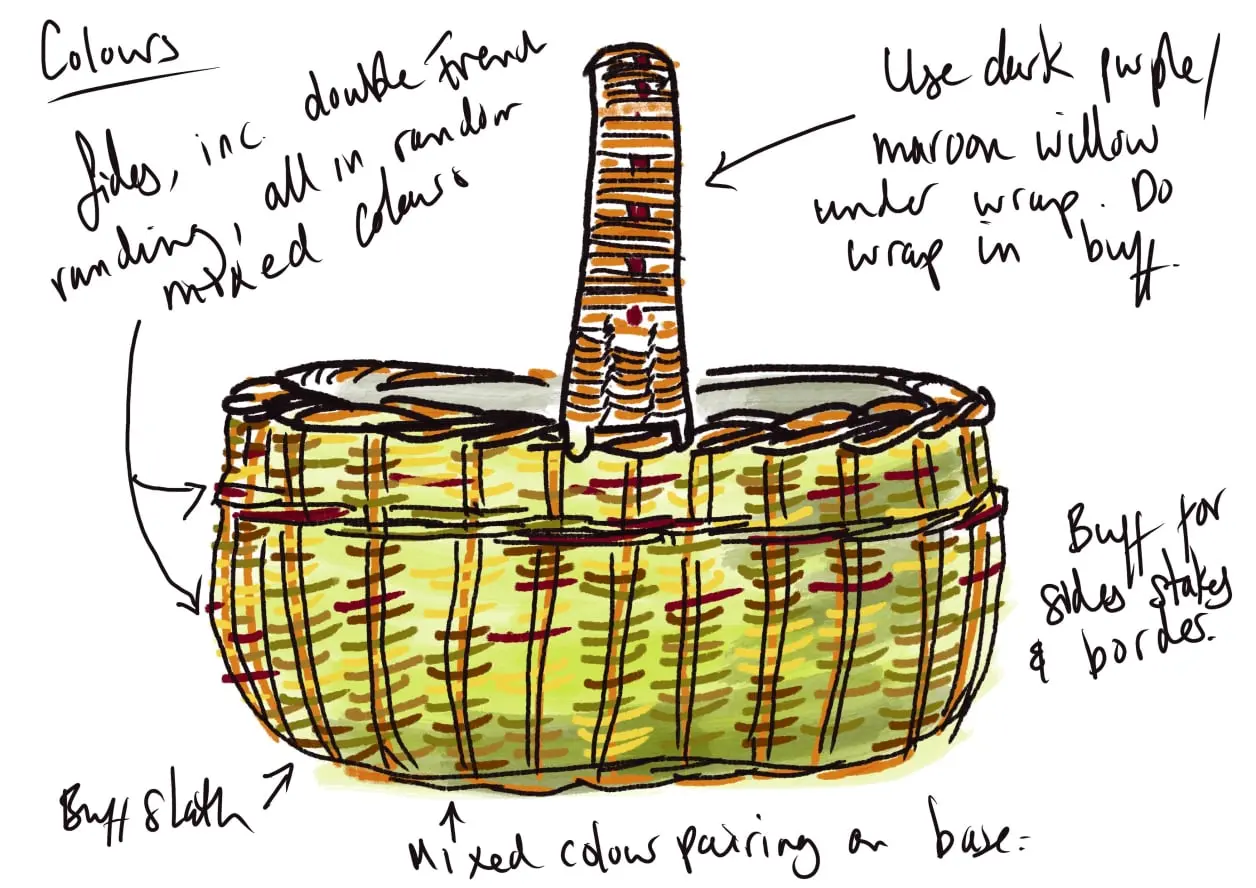 Colours
Sides, inc. double French
randing, all in random
mixed colours
Use dark purple/
maroon willow
under wrap. Do
wrap in buff.
Buff for
sides stakes
& border.
Buff slath
Mixed colour pairing on base.